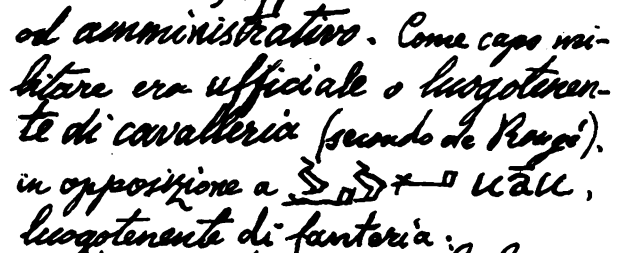 ed amministrativo. Come capo mi-
litare era ufficiale o luogotenen-
te di cavalleria (secondo de Rougé).
in opposizione a uāu,
luogotenente di fanteria.